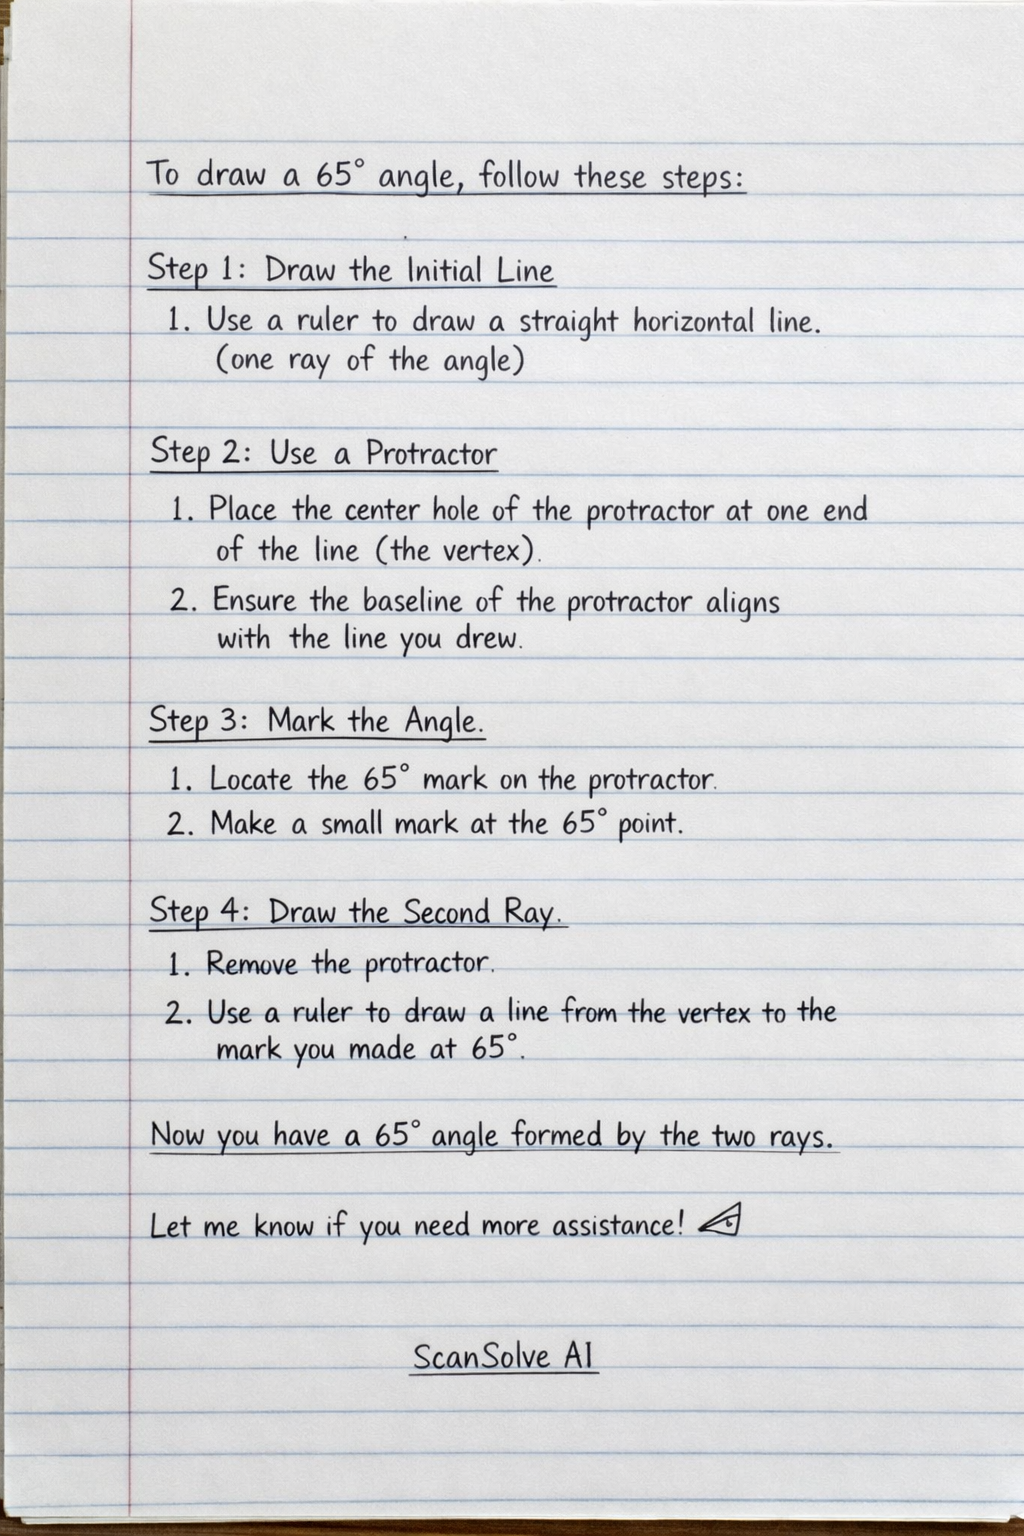 To draw a 65° angle, follow these steps:
Step 1: Draw the Initial Line
1. Use a ruler to draw a straight horizontal line.
(one ray of the angle)
Step 2: Use a Protractor
1. Place the center hole of the protractor at one end
of the line (the vertex).
2. Ensure the baseline of the protractor aligns
with the line you drew.
Step 3: Mark the Angle.
1. Locate the 65° mark on the protractor.
2. Make a small mark at the 65° point.
Step 4: Draw the Second Ray.
1. Remove the protractor.
2. Use a ruler to draw a line from the vertex to the
mark you made at 65°.
Now you have a 65° angle formed by the two rays.
Let me know if you need more assistance!
ScanSolve AI